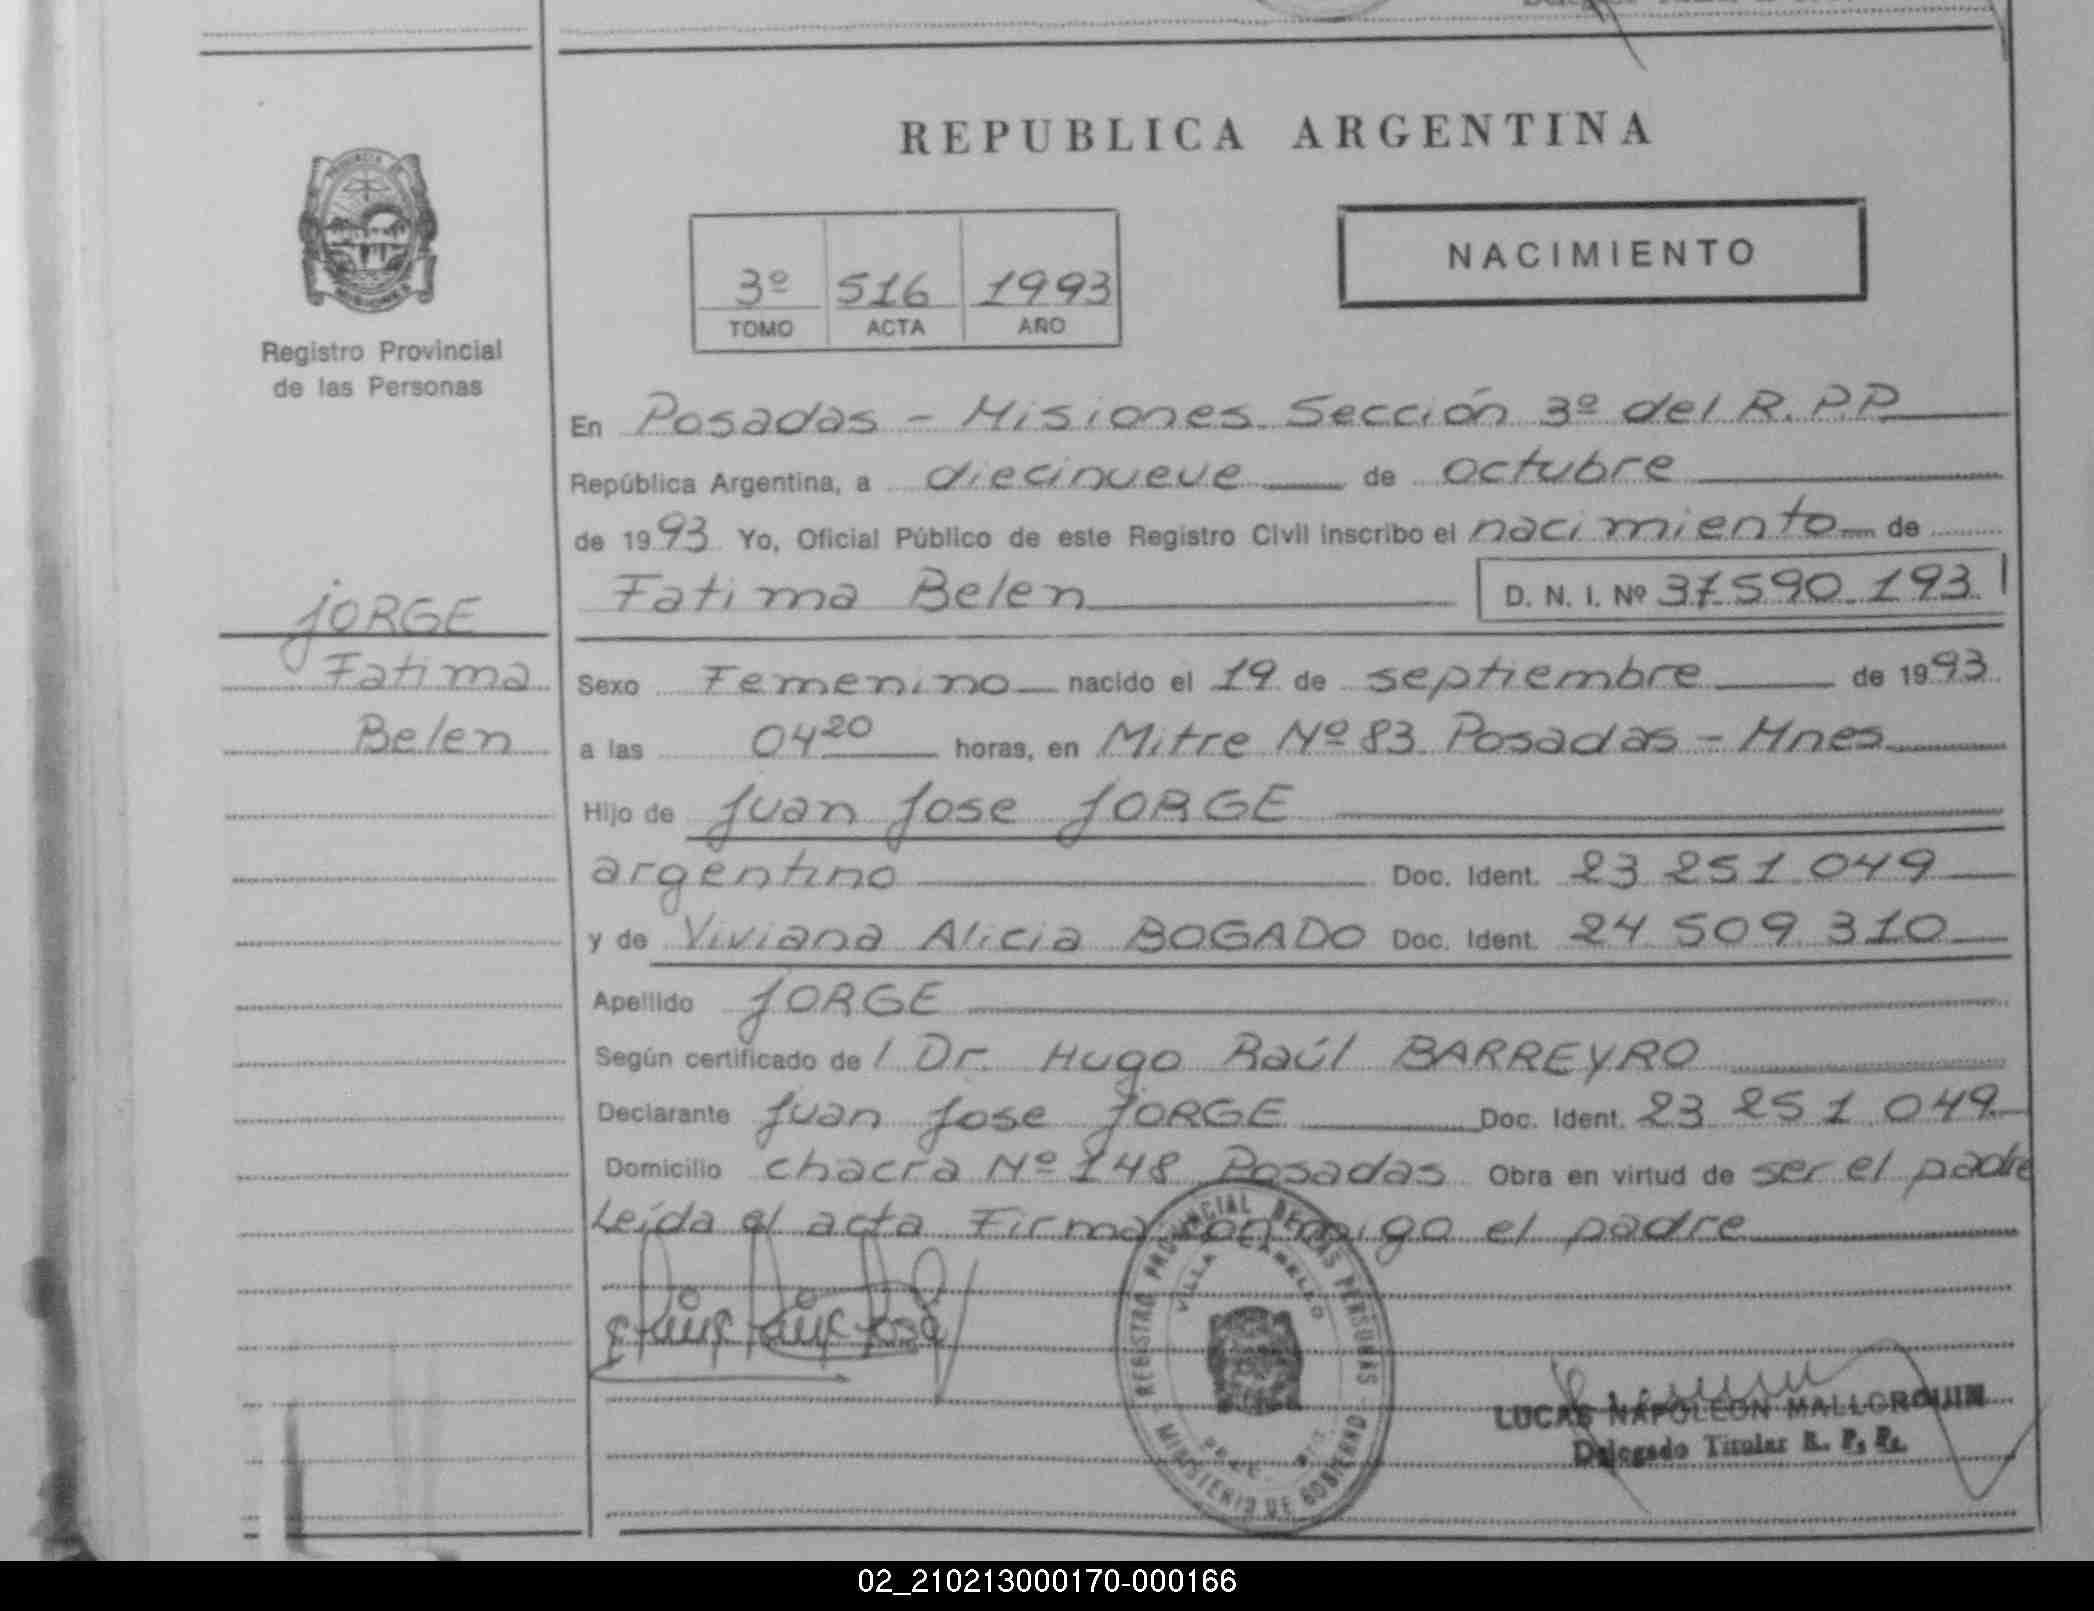 REPUBLICA ARGENTINA
NACIMIENTO
3º 516 1993
TOMO ACTA AÑO
PROVINCIA DE
MISIONES
Registro Provincial
de las Personas
En Posadas - Misiones Sección 3º del R.P.P.
República Argentina, a diecinueve de octubre
de 1993 Yo, Oficial Público de este Registro Civil inscribo el nacimiento de
Fatima Belen D. N. I. Nº 37.590.193
JORGE
Fatima
Belen
Sexo Femenino nacido el 19 de septiembre de 1993
a las 04 20 horas, en Mitre Nº 83 Posadas - Mnes
Hijo de Juan Jose JORGE
argentino Doc. Ident. 23 251 049
y de Viviana Alicia BOGADO Doc. Ident. 24 509 310
Apellido JORGE
Según certificado de / Dr. Hugo Raúl BARREYRO
Declarante Juan Jose JORGE Doc. Ident. 23 251 049
Domicilio chacra Nº 148 Posadas Obra en virtud de ser el padre
Leída el acta Firma conmigo el padre
REGISTRO PROVINCIAL DE LAS PERSONAS
VILLA CABELLO
MINISTERIO DE GOBIERNO
LUCAS NAPOLEON MALLORQUIN
Delegado Titular R. P. P.
02_210213000170-000166